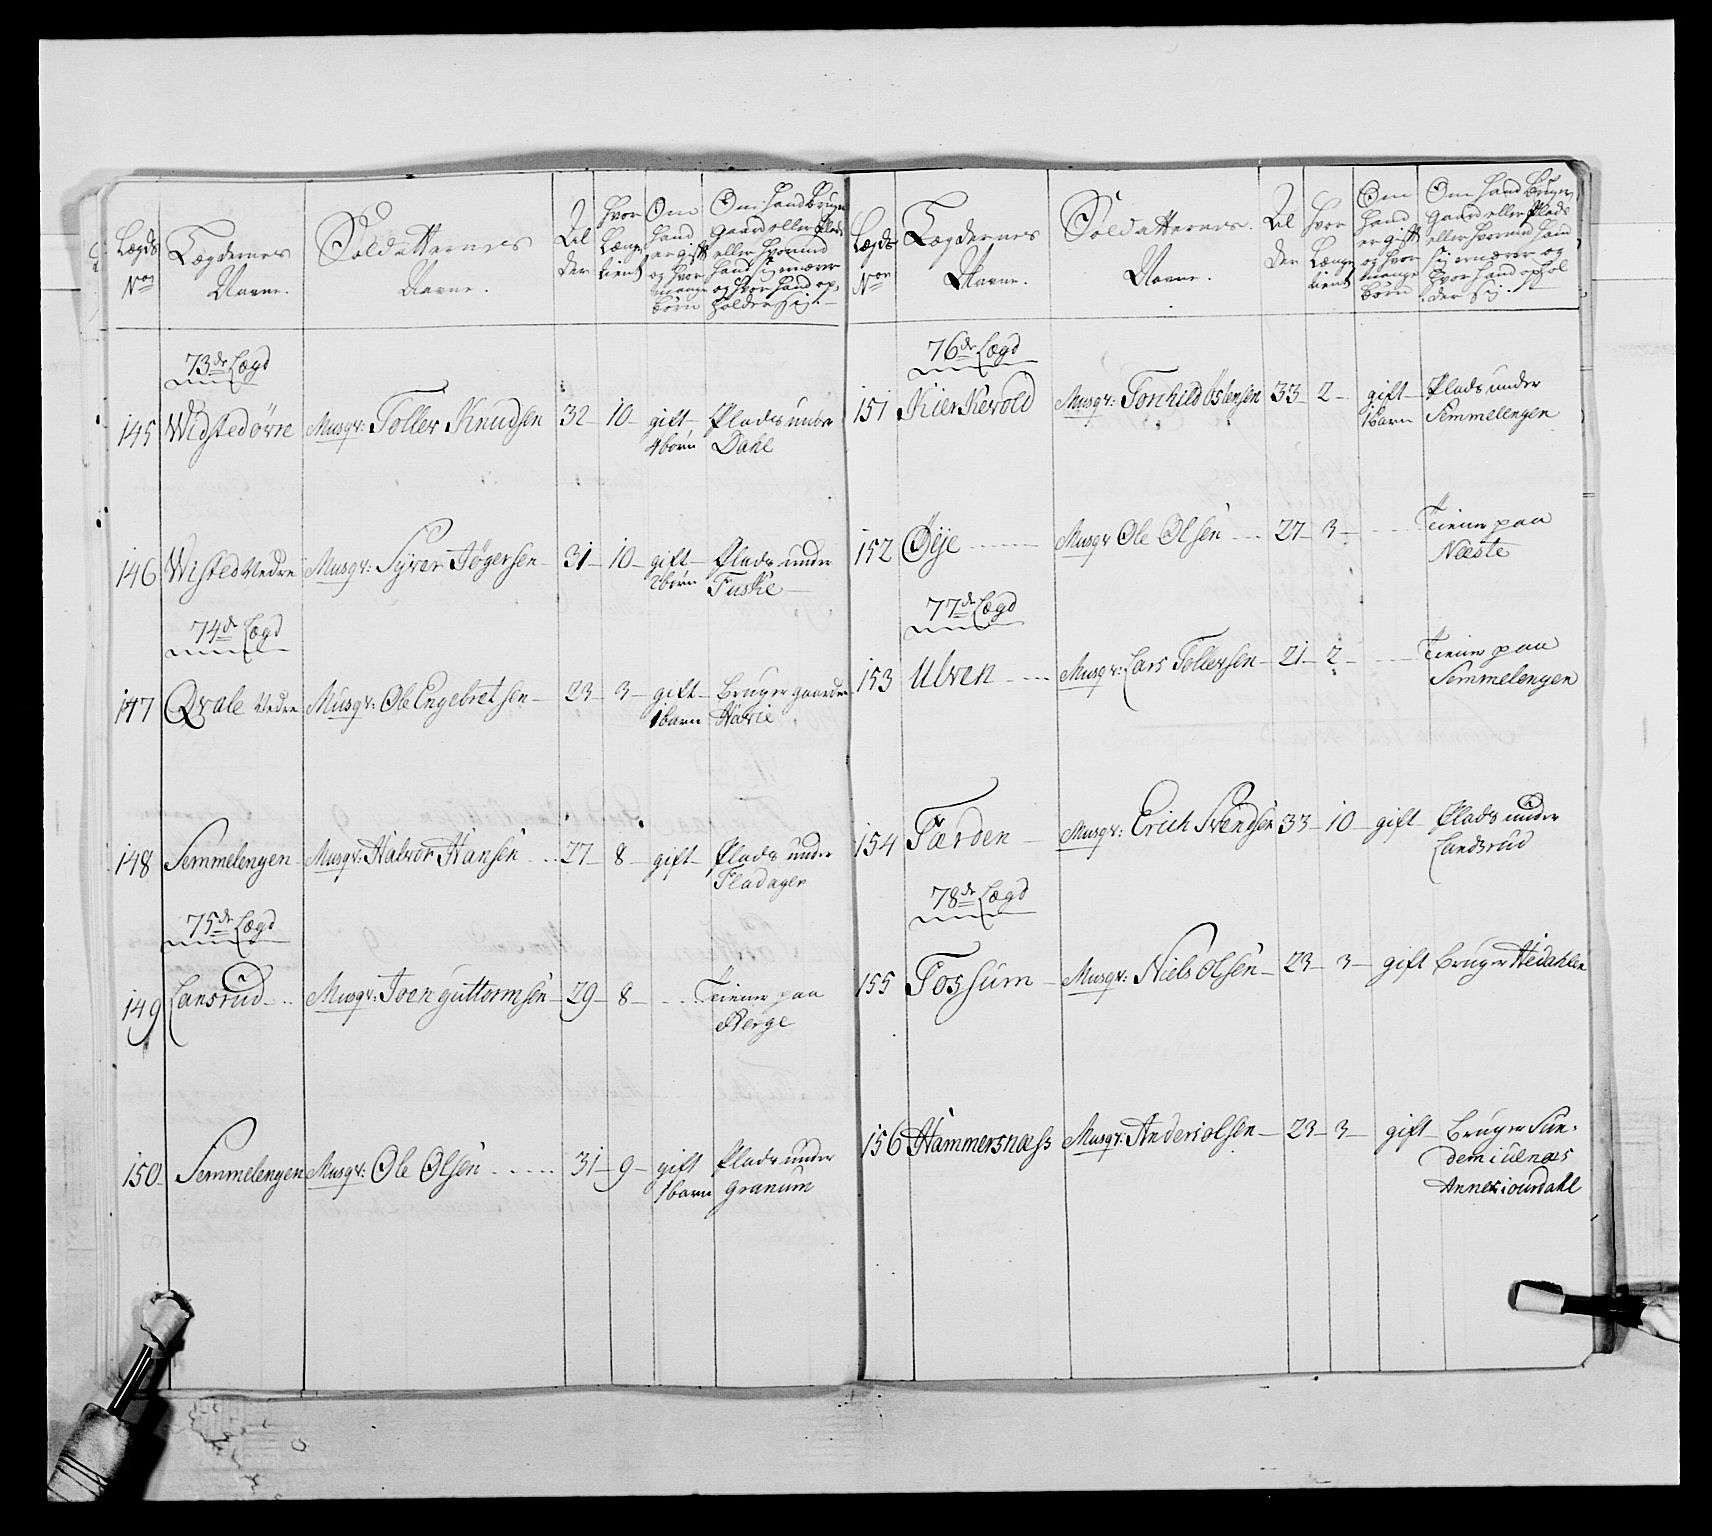 Lægds Nos
Lægdernes Navne.
Soldatternes Navne.
Al der
Hvor Længe tient
Om hand er gift og hvor mange børn
Om hand Bruger gaard eller Plads eller hvormed hand sig ernærer og hvor hand op, holder sig.
73de Lægd
145 Widstedørre Musqr: Toller Knudsen 32 10 gift Plads under
4 børn Dahl
146 Wisted Nedre Musqr: Syver Jøgersen 31 10 gift Plads under
2 børn Fuske
74de Lægd
147 Qvale Nedre Musqr: Ole Engebretsen 23 3 gift Bruger gaarden
1 barn Havie
148 Semmelengen Musqr: Halvor Hansen 27 8 gift Plads under
Fladager
75de Lægd
149 Lansrud Musqr: Joen guttormsen 29 8 Tiener paa
Berge
150 Semmelengen Musqr: Ole Olsen 31 9 gift Plads under
1 barn granum
Lægds Nor
Lægdernes Navne.
Soldatternes Navne.
Al der
Hvor Længe tient
Om Hand er gift og hvor mange børn
Om Hand Bruger gaard eller Plads eller hvormed hand sig ernærer og hvor hand ophol der sig.
76de Lægd
151 Kier Kevold Musqr: Torchild Østensen 33 2 gift Plads under
1 barn Semmelengen
152 Øije Musqr Ole Olsen 27 3 Tiener paa
Næste
77de Lægd
153 Ulven Musqr: Lars Tollersen 21 2 Tiener paa
Semmelengen
154 Færden Musqr: Erich Svendsen 33 10 gift Plads under
Landsrud
78de Lægd
155 Fossum Musqr: Niels Olsen 23 3 gift Bruger Hedahlen
156 Hammersnæss Musqr: Anders olsen 23 3 gift Bruger Sun-
dem i
Annex i ourdahl